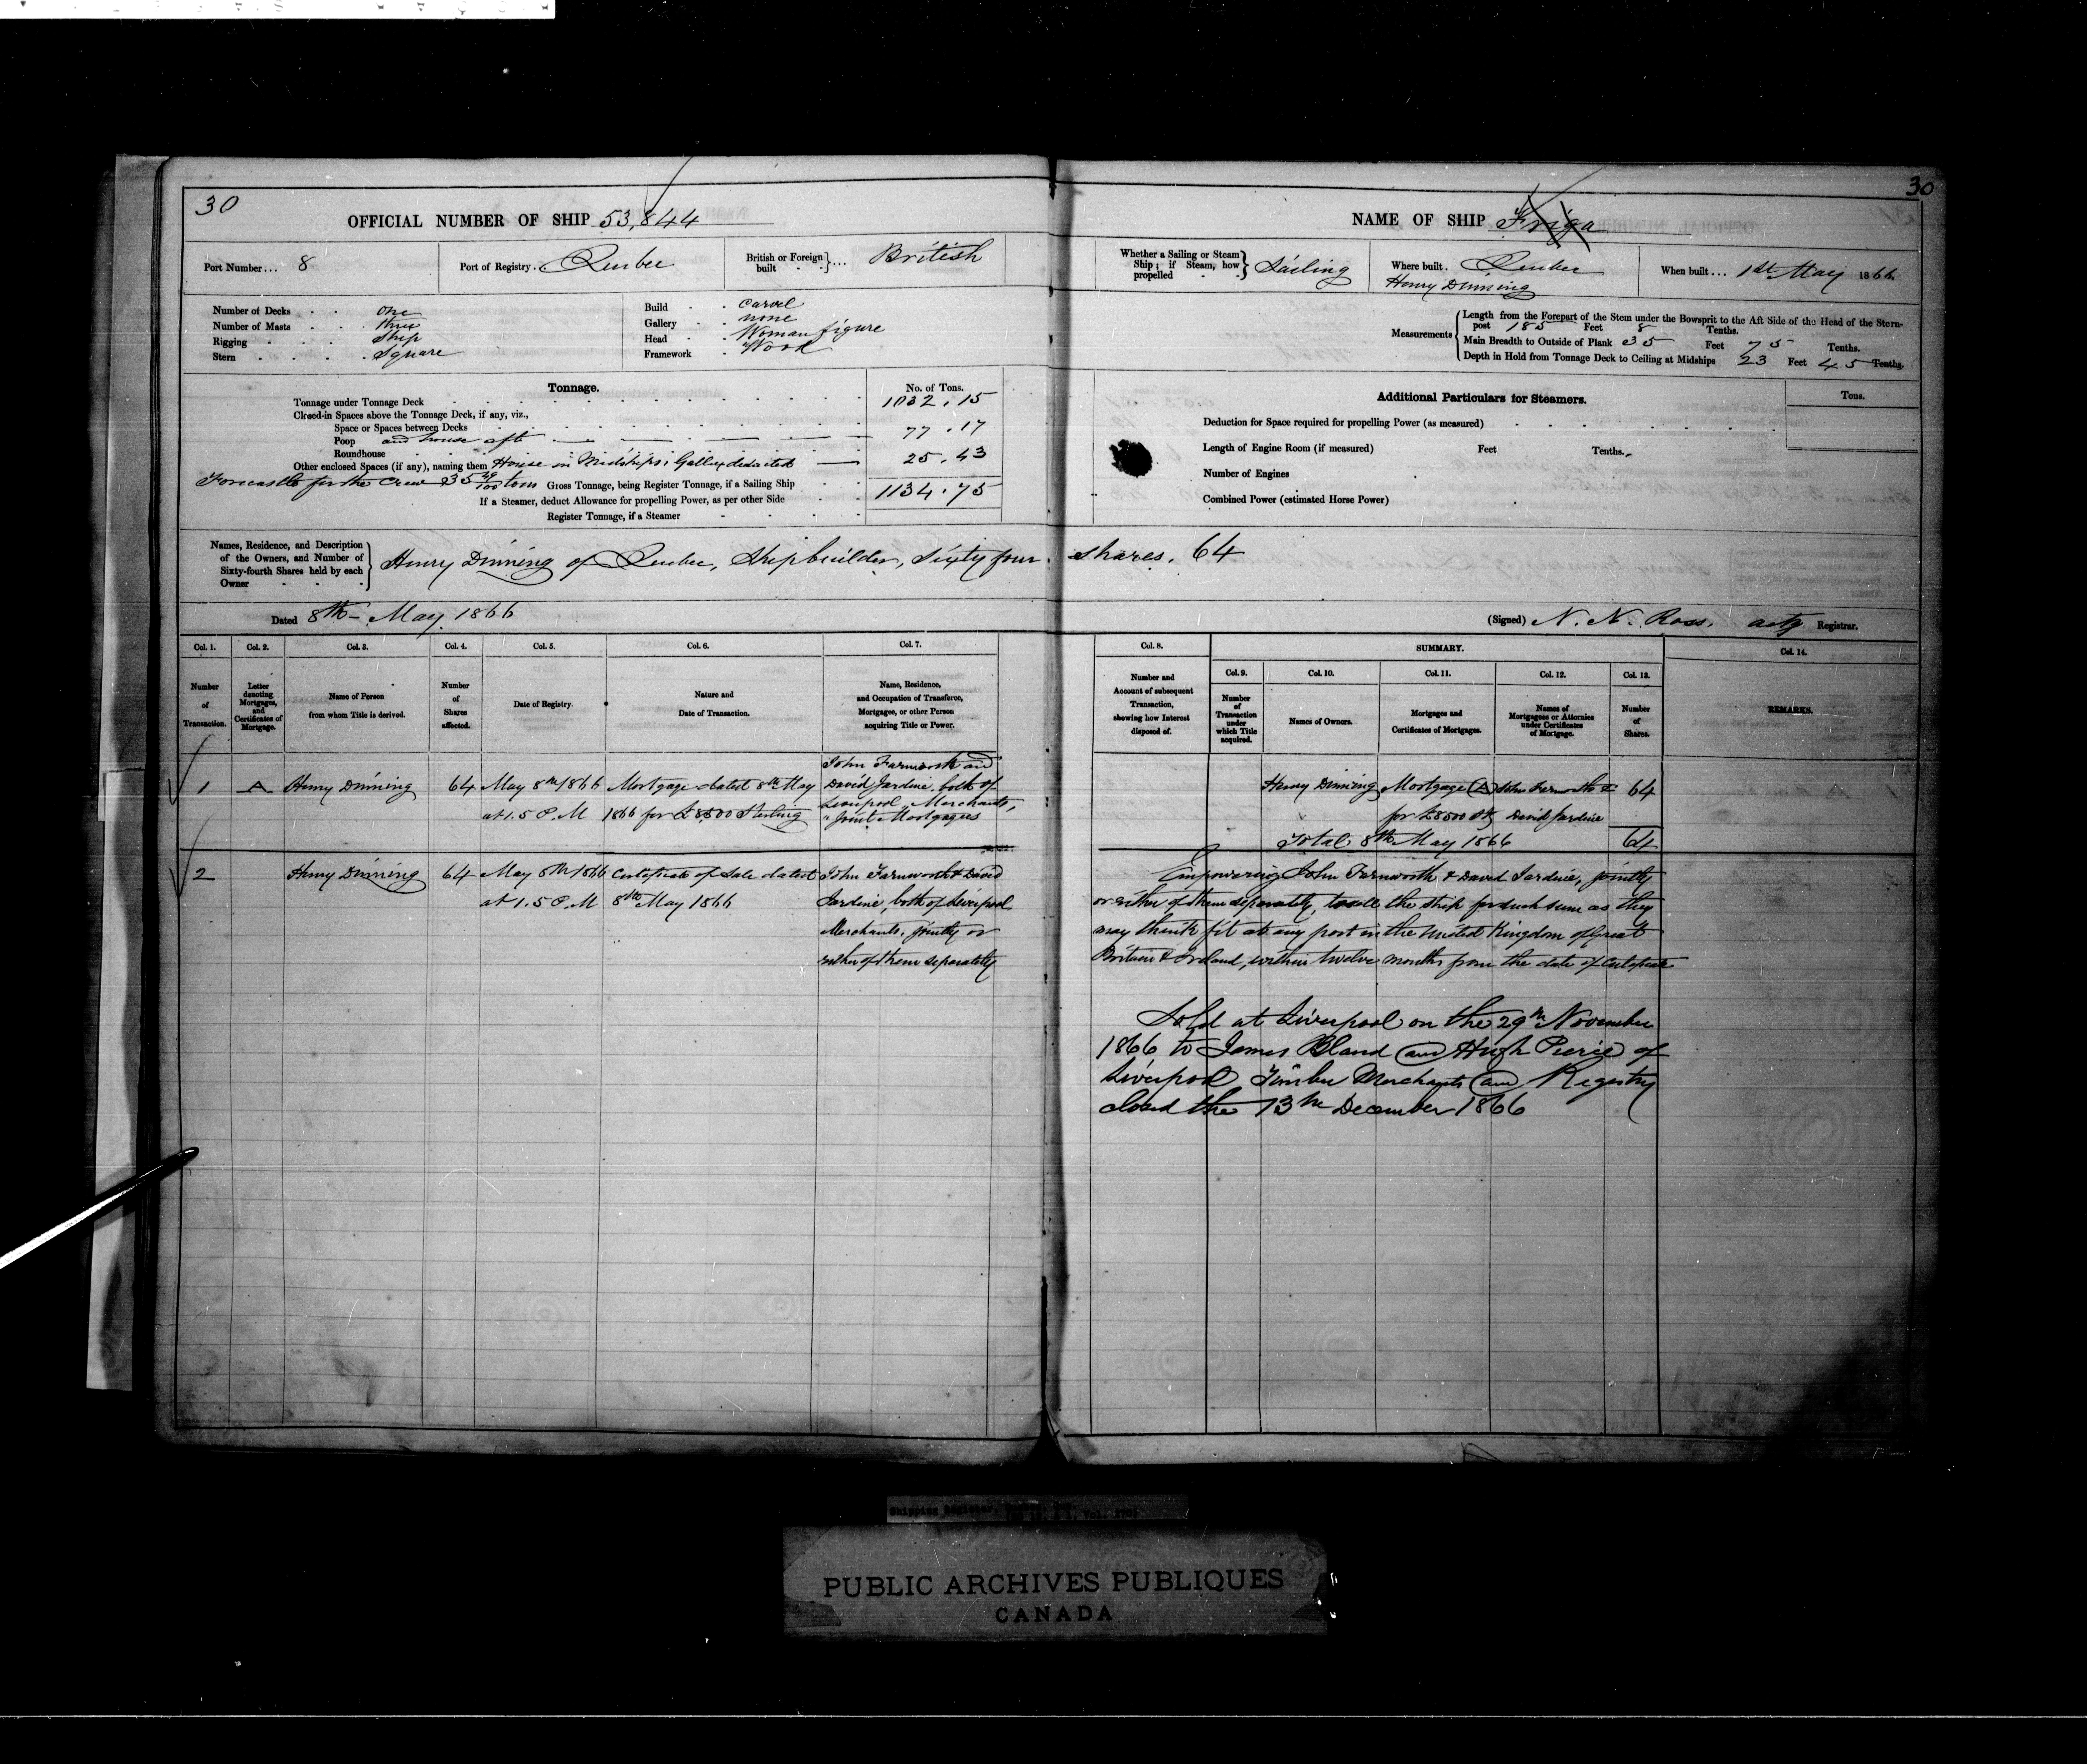 30
OFFICIAL NUMBER OF SHIP 53,844
Port Number... 8
Port of Registry. Quebec
British or Foreign built ... British
Number of Decks One
Number of Masts three
Rigging Ship
Stern Square
Build Carvel
Gallery none
Head Woman figure
Framework Wood
Tonnage.
No. of Tons.
Tonnage under Tonnage Deck 1032.15
Closed-in Spaces above the Tonnage Deck, if any, viz.,
Space or Spaces between Decks
Poop and house aft 77.17
Roundhouse
Other enclosed Spaces (if any), naming them House in Midships, Galley deducted 25.43
Forecastle for the Crew 35 tons Gross Tonnage, being Register Tonnage, if a Sailing Ship 1134.75
If a Steamer, deduct Allowance for propelling Power, as per other Side
Register Tonnage, if a Steamer
Names, Residence, and Description of the Owners, and Number of Sixty-fourth Shares held by each Owner
Henry Dinning of Quebec, Shipbuilder, Sixty four shares. 64
Dated 8th May 1866
Col. 1. Col. 2. Col. 3. Col. 4. Col. 5. Col. 6. Col. 7.
Number of Transaction.
Letter denoting Mortgages, and Certificates of Mortgage.
Name of Person from whom Title is derived.
Number of Shares affected.
Date of Registry.
Nature and Date of Transaction.
Name, Residence, and Occupation of Transferee, Mortgagee, or other Person acquiring Title or Power.
1 A Henry Dinning 64 May 8th 1866 at 1.5 P.M
Mortgage dated 8th May
1866 for £8,500 Sterling
John Farnworth and
David Jardine, both of
Liverpool, Merchants,
"Joint Mortgagees
2 Henry Dinning 64 May 8th 1866 at 1.5 P.M
Certificate of Sale dated
8th May 1866
John Farnworth & David
Jardine, both of Liverpool
Merchants, jointly or
either of them separately
30
NAME OF SHIP Friga
Whether a Sailing or Steam Ship; if Steam, how propelled Sailing
Where built. Quebec
Henry Dinning
When built... 1st May 1866
Measurements
Length from the Forepart of the Stem under the Bowsprit to the Aft Side of the Head of the Stern-
post 185 Feet 8 Tenths.
Main Breadth to Outside of Plank 35 Feet 75 Tenths.
Depth in Hold from Tonnage Deck to Ceiling at Midships 23 Feet 45 Tenths.
Additional Particulars for Steamers.
Tons.
Deduction for Space required for propelling Power (as measured)
Length of Engine Room (if measured) Feet Tenths.
Number of Engines
Combined Power (estimated Horse Power)
(Signed) N. N. Ross. actg Registrar.
Col. 8. SUMMARY. Col. 14.
Col. 9. Col. 10. Col. 11. Col. 12. Col. 13.
Number and Account of subsequent Transaction, showing how Interest disposed of.
Number of Transaction under which Title acquired.
Names of Owners.
Mortgages and Certificates of Mortgages.
Names of Mortgagees or Attornies under Certificates of Mortgage.
Number of Shares.
REMARKS.
Henry Dinning Mortgage (A) John Farnworth & 64
for £8500 Stg David Jardine
Total 8th May 1866 64
Empowering John Farnworth & David Jardine, jointly
or either of them separately, to sell the ship for such sum as they
may think fit at any port in the United Kingdom of Great
Britain & Ireland, within twelve months from the date of Certificate
Sold at Liverpool on the 29th November
1866 to James Bland and Hugh Pierie of
Liverpool Timber Merchants and Registry
closed the 13th December 1866
Shipping Register,
PUBLIC ARCHIVES PUBLIQUES
CANADA